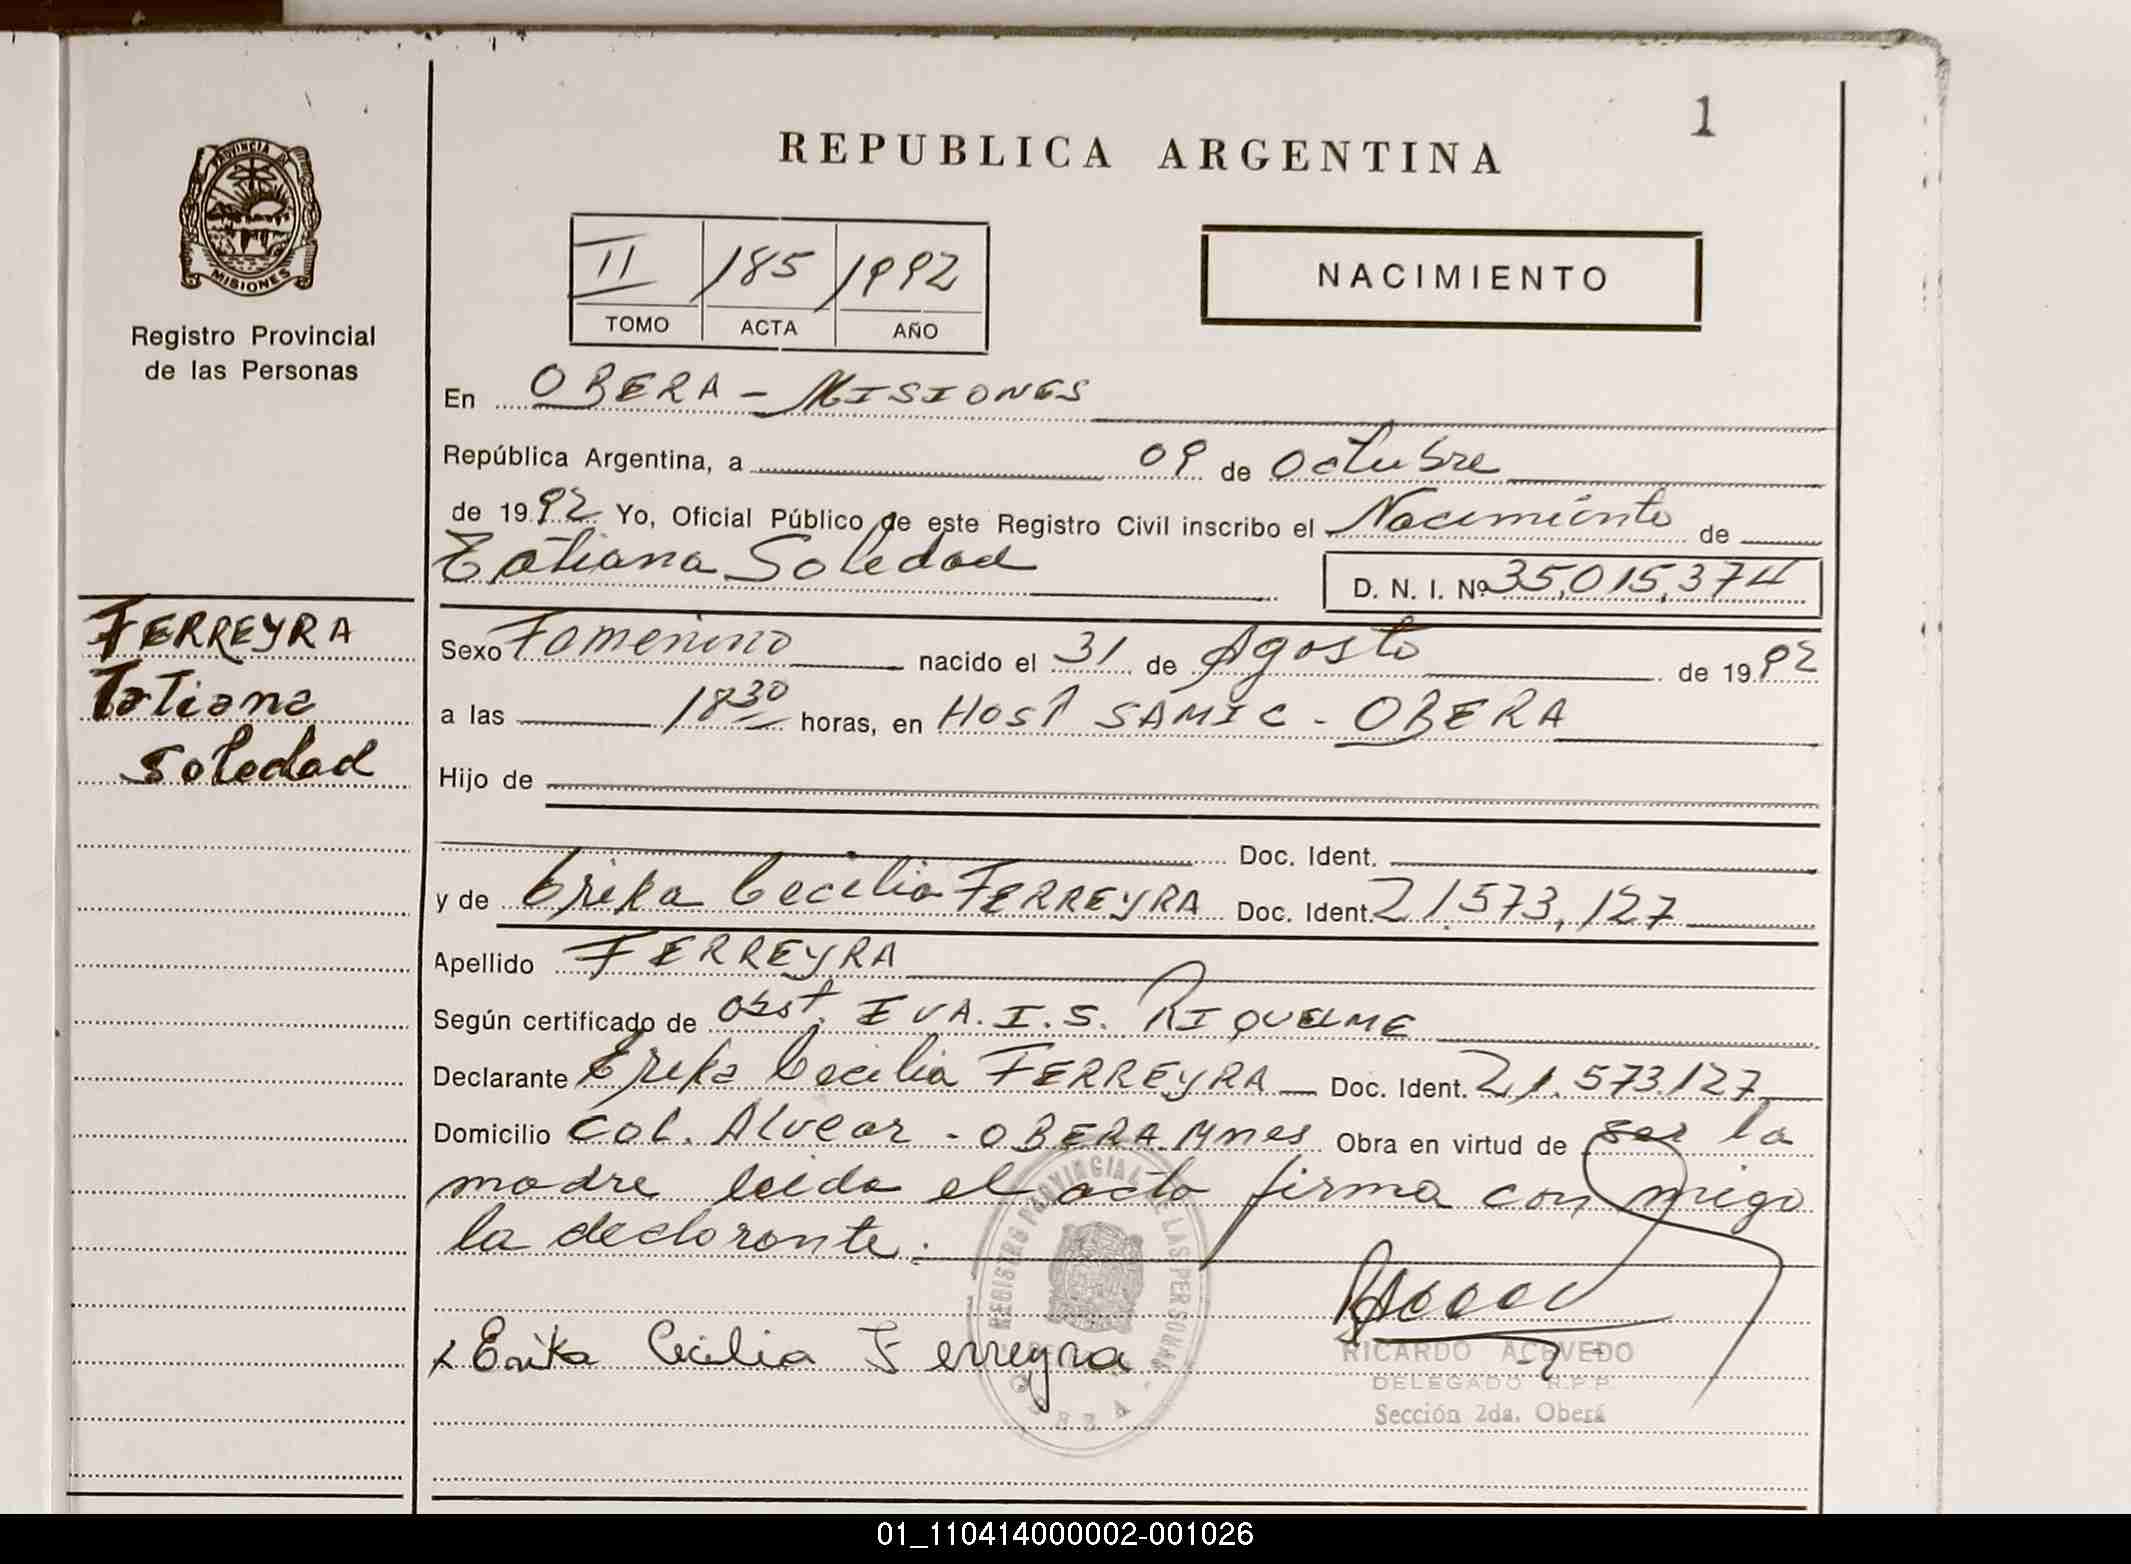 1
REPUBLICA ARGENTINA
PROVINCIA DE
MISIONES
Registro Provincial
de las Personas
II 185 1992
TOMO ACTA AÑO
NACIMIENTO
En OBERA - MISIONES
República Argentina, a 09 de Octubre
de 1992 Yo, Oficial Público de este Registro Civil inscribo el Nacimiento de
Tatiana Soledad D. N. I. Nº 35,015,374
FERREYRA
Tatiana
Soledad
Sexo Femenino nacido el 31 de Agosto de 1992
a las 18 30 horas, en Hosp SAMIC - OBERA
Hijo de
Doc. Ident.
y de Erika Cecilia FERREYRA Doc. Ident. 21.573,127
Apellido FERREYRA
Según certificado de Obst. EVA. I. S. RIQUELME
Declarante Erika Cecilia FERREYRA Doc. Ident. 21.573.127
Domicilio Col. Alvear - OBERA Mnes Obra en virtud de ser la
madre leida el acta firma con migo
la declarante.
REGISTRO PROVINCIAL DE LAS PERSONAS
OBERA
x Erika Cecilia Ferreyra
RICARDO ACEVEDO
DELEGADO R.P.P.
Sección 2da. Oberá
01_110414000002-001026